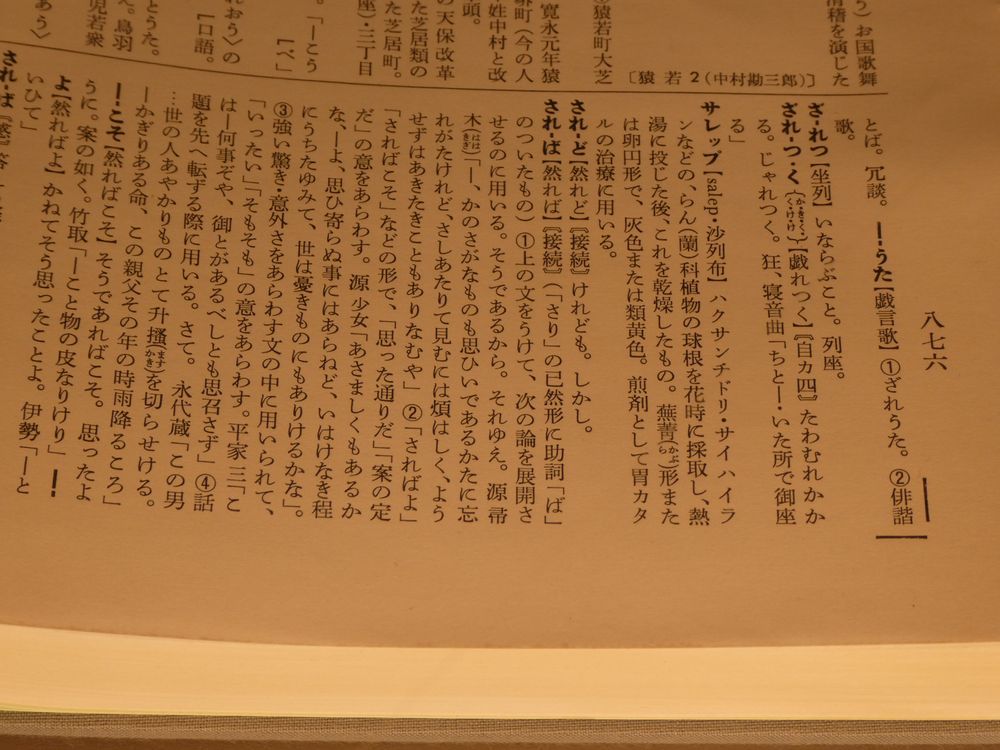 八七六
う）お国歌舞
滑稽を演じた
〔猿 若 2（中村勘三郎）〕
猿若町大芝
寛永元年猿
町（今の人
姓中村と改
頭。
の天保改革
た芝居類の
た芝居町。
座）・三丁目
。「―こう
れおう〉の
［口語。
とうた。
。鳥羽
児若衆
あう〉
とば。冗談。━うた［戯言歌］①ざれうた。②俳諧
歌。
ざ・れつ［坐列］いならぶこと。列座。
ざれ・つ・く｛かきく・くけけ｝［戯れつく］〖自カ四〗たわむれかか
る。じゃれつく。狂、寝音曲「ちと―・いた所で御座
る」
サレップ［salep・沙列布］ハクサンチドリ・サイハイラ
ンなどの、らん（蘭）科植物の球根を花時に採取し、熱
湯に投じた後、これを乾燥したもの。蕪菁（かぶら）形また
は卵円形で、灰色または類黄色。煎剤として胃カタ
ルの治療に用いる。
され・ど［然れど］〖接続〗けれども。しかし。
され・ば［然れば］〖接続〗（「さり」の已然形に助詞「ば」
のついたもの）①上の文をうけて、次の論を展開さ
せるのに用いる。そうであるから。それゆえ。源帚
木（ははきぎ）「―、かのさがなものも思ひいであるかたに忘
れがたけれど、さしあたりて見むには煩はしく、よう
せずはあきたきこともありなむや」②「さればよ」
「さればこそ」などの形で、「思った通りだ」「案の定
だ」の意をあらわす。源少女「あさましくもあるか
な、―よ、思ひ寄らぬ事にはあらねど、いはけなき程
にうちたゆみて、世は憂きものにもありけるかな」。
③強い驚き・意外さをあらわす文の中に用いられて、
「いったい」「そもそも」の意をあらわす。平家三「こ
は―何事ぞや、御とがあるべしとも思召さず」④話
題を先へ転ずる際に用いる。さて。永代蔵「この男
…世の人あやかりものとて升掻（ますかき）を切らせける。
―かぎりある命、この親父その年の時雨降るころ」
━こそ［然ればこそ］そうであればこそ。思ったよ
うに。案の如く。竹取「―こと物の皮なりけり」━
よ［然ればよ］かねてそう思ったことよ。伊勢「―と
いひて」
され・ば